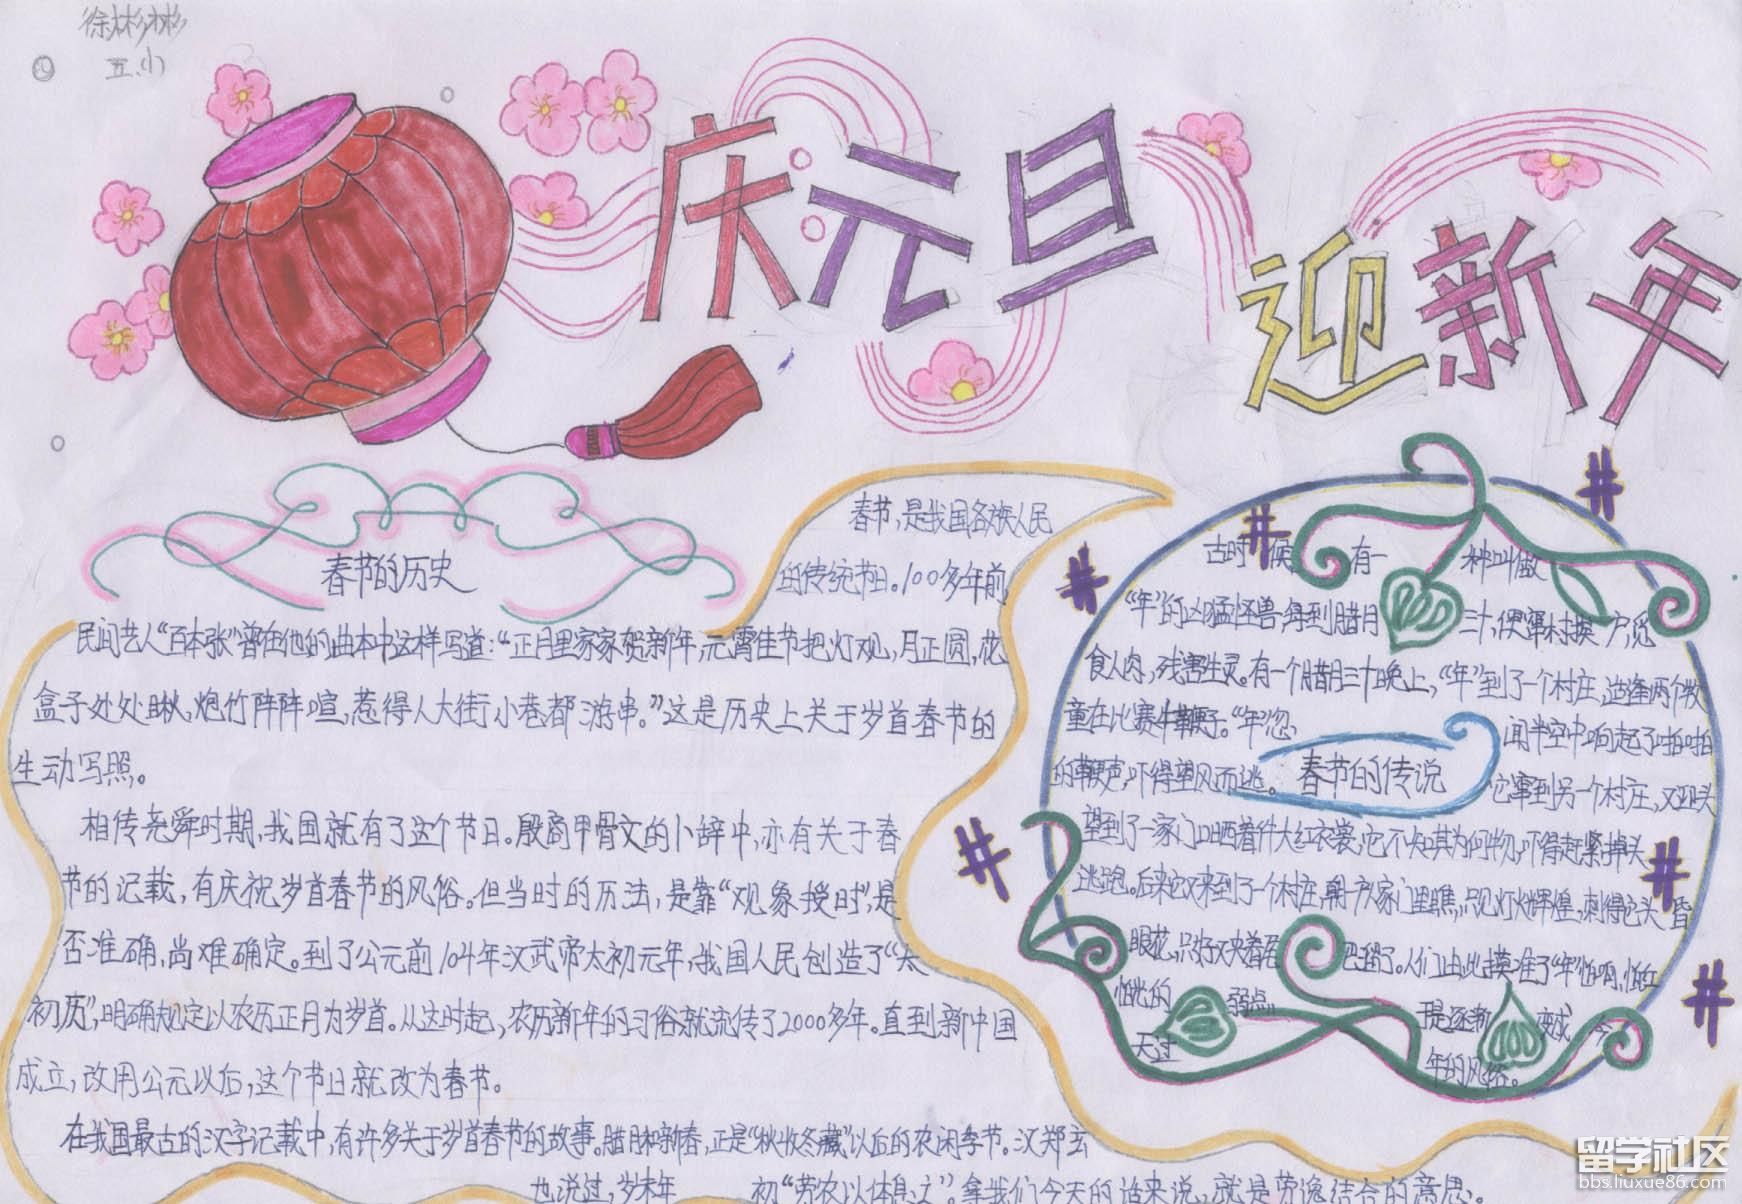 徐彬彬
五.小
庆元旦
迎新年
春节的历史
春节,是我国各族人民
的传统节日。100多年前
民间艺人“百本张”曾在他的曲本中这样写道:“正月里家家贺新年,元宵佳节把灯观,月正圆,花
盒子处处瞅,炮竹阵阵喧,惹得人大街小巷都游串。”这是历史上关于岁首春节的
生动写照。
相传尧舜时期,我国就有了这个节日。殷商甲骨文的卜辞中,亦有关于春
节的记载,有庆祝岁首春节的风俗。但当时的历法,是靠“观象授时”,是
否准确,尚难确定。到了公元前104年汉武帝太初元年,我国人民创造了“太
初历”,明确规定以农历正月为岁首。从这时起,农历新年的习俗就流传了2000多年。直到新中国
成立,改用公元以后,这个节日就改为春节。
在我国最古的汉字记载中,有许多关于岁首春节的故事。腊月和新春,正是“秋收冬藏”以后的农闲季节。汉郑玄
也说过,岁末年 初“劳农以休息之”。拿我们今天的话来说,就是劳逸结合的意思。
古时候 有一 种叫做
“年”的凶猛怪兽,每到腊月 三十,便窜村挨户,觅
食人肉,残害生灵。有一个腊月三十晚上,“年”到了一个村庄,适逢两个牧
童在比赛牛鞭子。“年”忽 闻半空中响起了啪啪
的鞭声,吓得望风而逃。 春节的传说 它窜到另一个村庄,又迎头
望到了一家门口晒着件大红衣裳,它不知其为何物,吓得赶紧掉头
逃跑。后来它又来到了一个村庄,朝一户家门里瞧,只见灯火辉煌,刺得它头昏
眼花,只好又夹着尾 巴溜了。人们由此摸准了“年”怕响,怕红
怕光的 弱点 于是逐渐 变成 今
天过 年的风俗。
留学社区
bbs.liuxue86.com